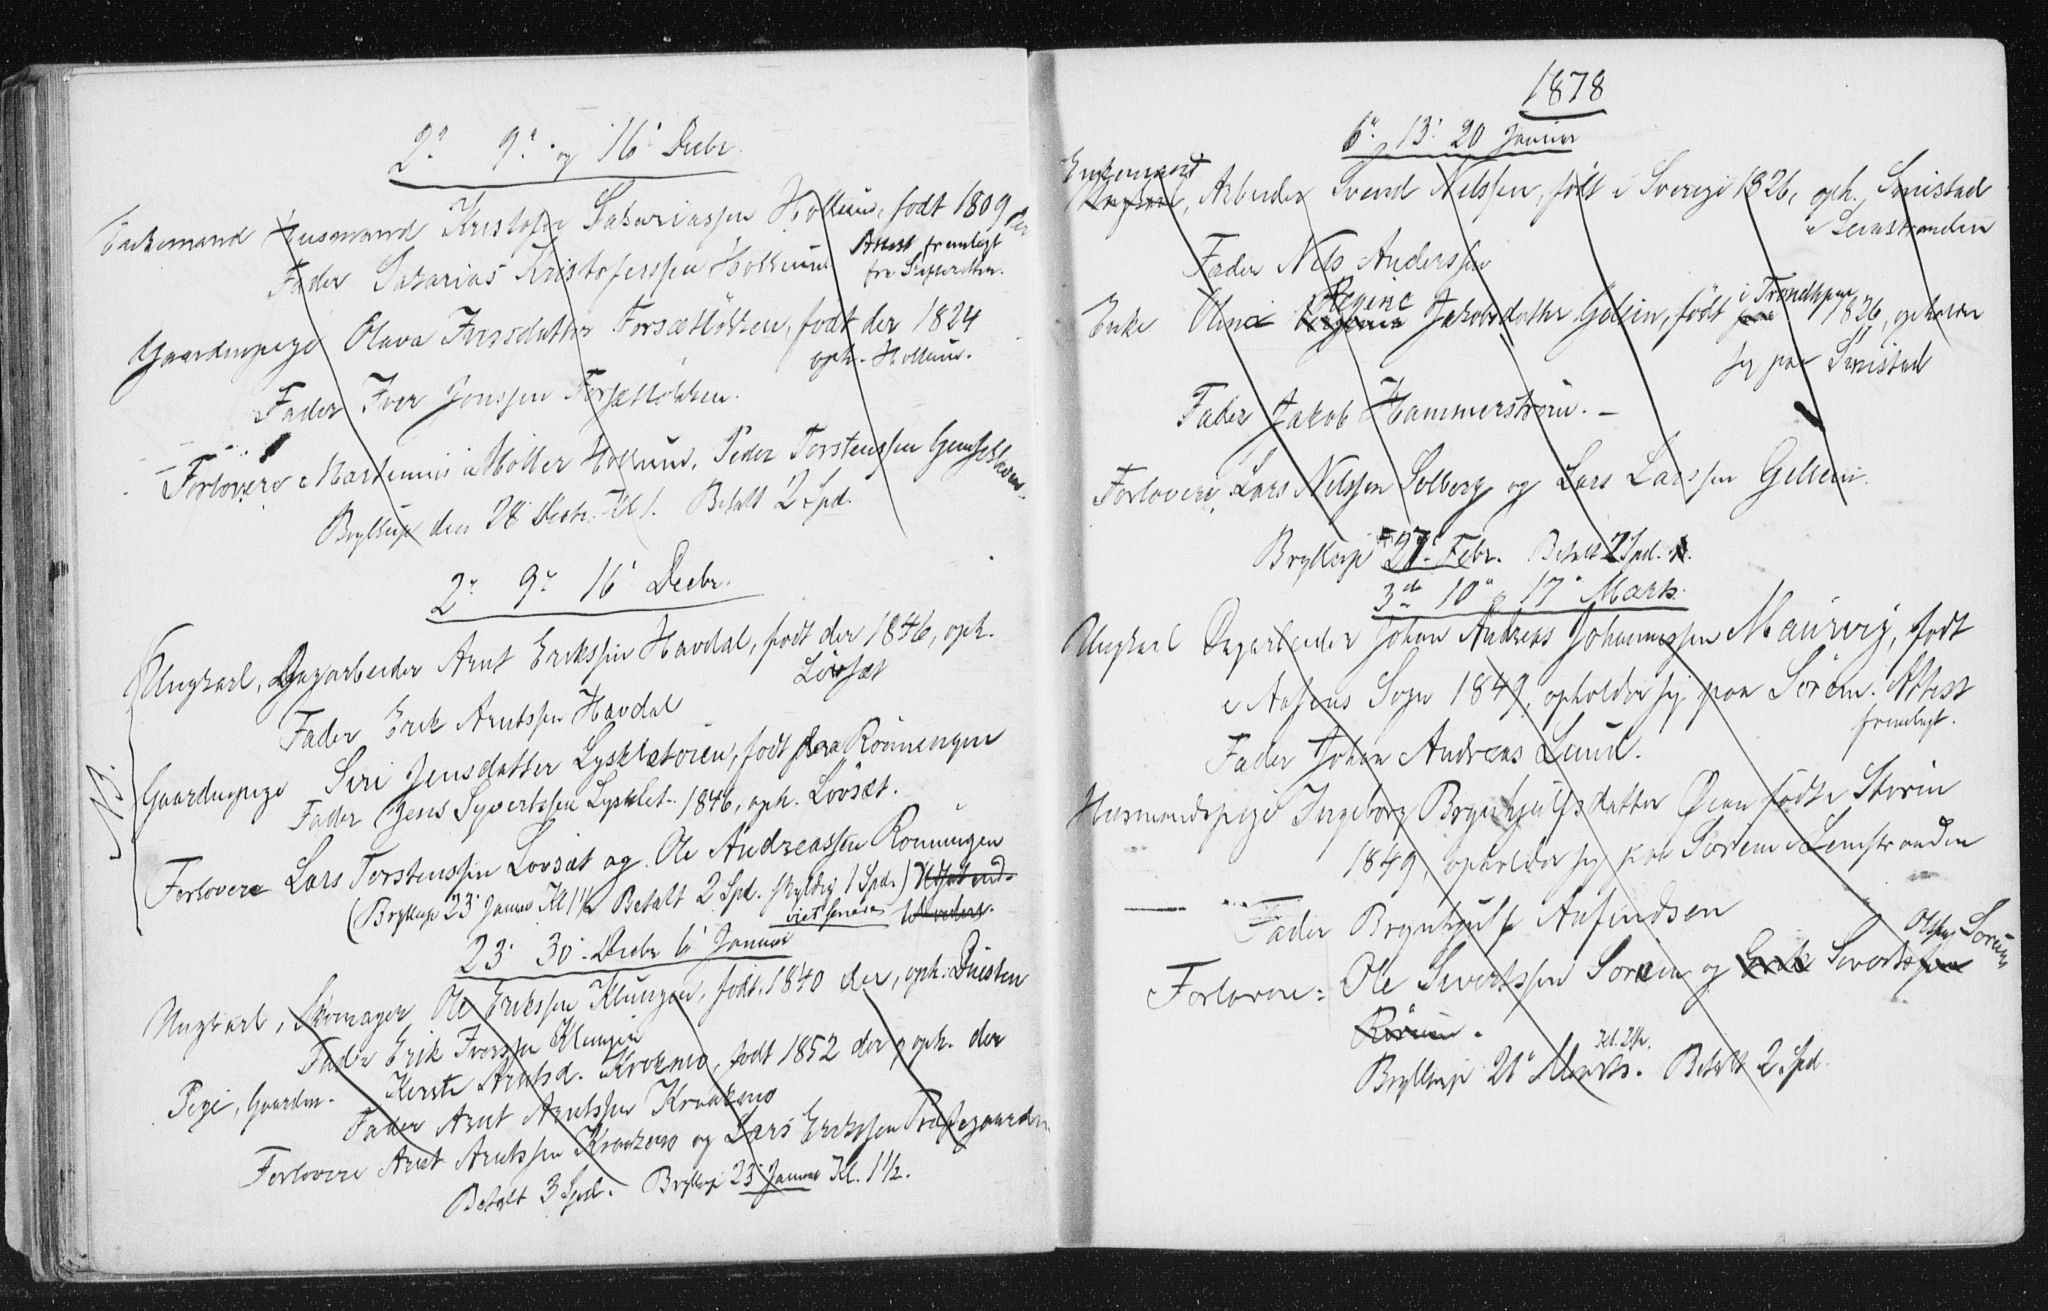 2den 9de og 16de Decbr.
Enkemand Husmand Kristofer Sakariassen Hollum, født 1809 der
Fader Sakarias Kristofersen Hollum Attest fremlagt
fra Skifteretten.
Gaardmpige Olava Iversdatter Forsætløkken, født der 1824
oph. Hollum.
Fader Iver Jonssen Forsætløkken.
Forlovere Martinus Møller Hollum, Peder Torstenssen
Bryllup den 28 Decbr. Kl 1. Betalt 2 Spd.
2. 9. 16. Decbr.
Ungkarl, Dagarbeider Arnt Erikssen Havdal, født der 1846, oph.
Løvsæt
Fader Erik Arntssen Havdal
NB.
Gaardmpige Siri Jensdatter Lyskletøien, født paa Rønningen
Fader Jens Syvertssen Lysklet. 1846, oph. Løvsæt.
Forlovere Lars Torstenssen Løvsæt og Ole Andreassen Rønningen
(Bryllup 23. Januar Kl 1½ Betalt 2 Spd. skyldig 1 Spd.)
viet senere
23. 30. Decbr 6. Januar
Ungkarl, Skomager Ole Erikssen Klungen, født 1840 der, oph. Øiesten
Fader Erik Iverssen Klungen
Pige, Gaardm. Kirsti Arntsd. Krokmo, født 1852 der oph. der
Fader Arnt Arntssen Kraakmo
Forlovere Arnt Arntssen Kraakmo og Lars Erikssen Præstegaarden
Betalt 3 Spd. Bryllup 23. Januar Kl. 1½.
1878
6. 13. 20 Januar
Enkemand
Ungkarl, Arbeider Svend Nilssen, født i Sverige 1826, oph. Smistad
i Leinstranden
Fader Nils Anderssen
Enke Oline Regine Jakobsdatter Gellin, født i Trondhjem 1826, opholder
sig paa Smistad
Fader Jakob Hammerstrøm. –
Forlovere, Lars Nilssen Solberg og Lars Larssen Gellein.
Bryllup 27. Febr. Betalt 2 Spd.
3die 10de 17de Marts.
Ungkarl Dagarbeider Johan Andreas Johannessen Maurvig, født
i Aasens Sogn 1849, opholder sig paa Søreim. Attest
fremlagt.
Fader Johan Andreas Lund.
Husmandspige Ingeborg Brynhjulfsdatter Øien født i Storen
1849, opholder sig paa Sørem i Leinstranden
Fader Brynhjulf Aufindsen
Forlovere: Ole Sivertssen Sørem og Erik Sivertssen Olssen Sørem
Røreim.
Bryllup 21. Marts. Kl. 2. Betalt 2 Spd.